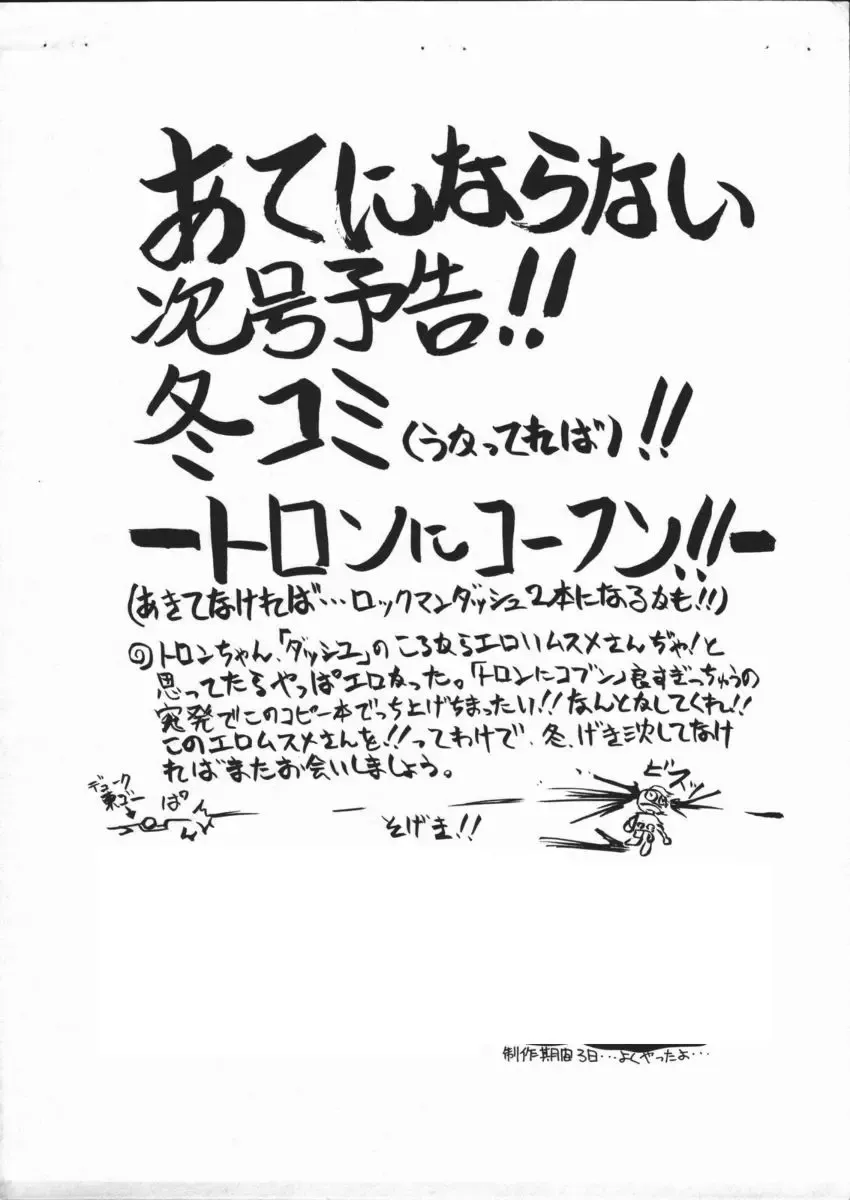 あてにならない
次号予告!!
冬コミ(うかってれば)!!
ートロンにコーフン!!ー
(あきてなければ…ロックマンダッシュ2本になるかも!!)
トロンちゃん、「ダッシュ」のころからエロいムスメさんぢゃ!と
思ってたらやっぱエロかった。「トロンにコブン」良すぎっちゅうの
発でこのコピー本でっち上げちまったい!!なんとかしてくれ!!
このエロムスメさんを!!ってわけで、冬、げき沈してなけ
ればまたお会いしましょう。
デューク
東ゴー
ぱん
そげき!!
ビスッ
制作期間3日…よくやったよ…